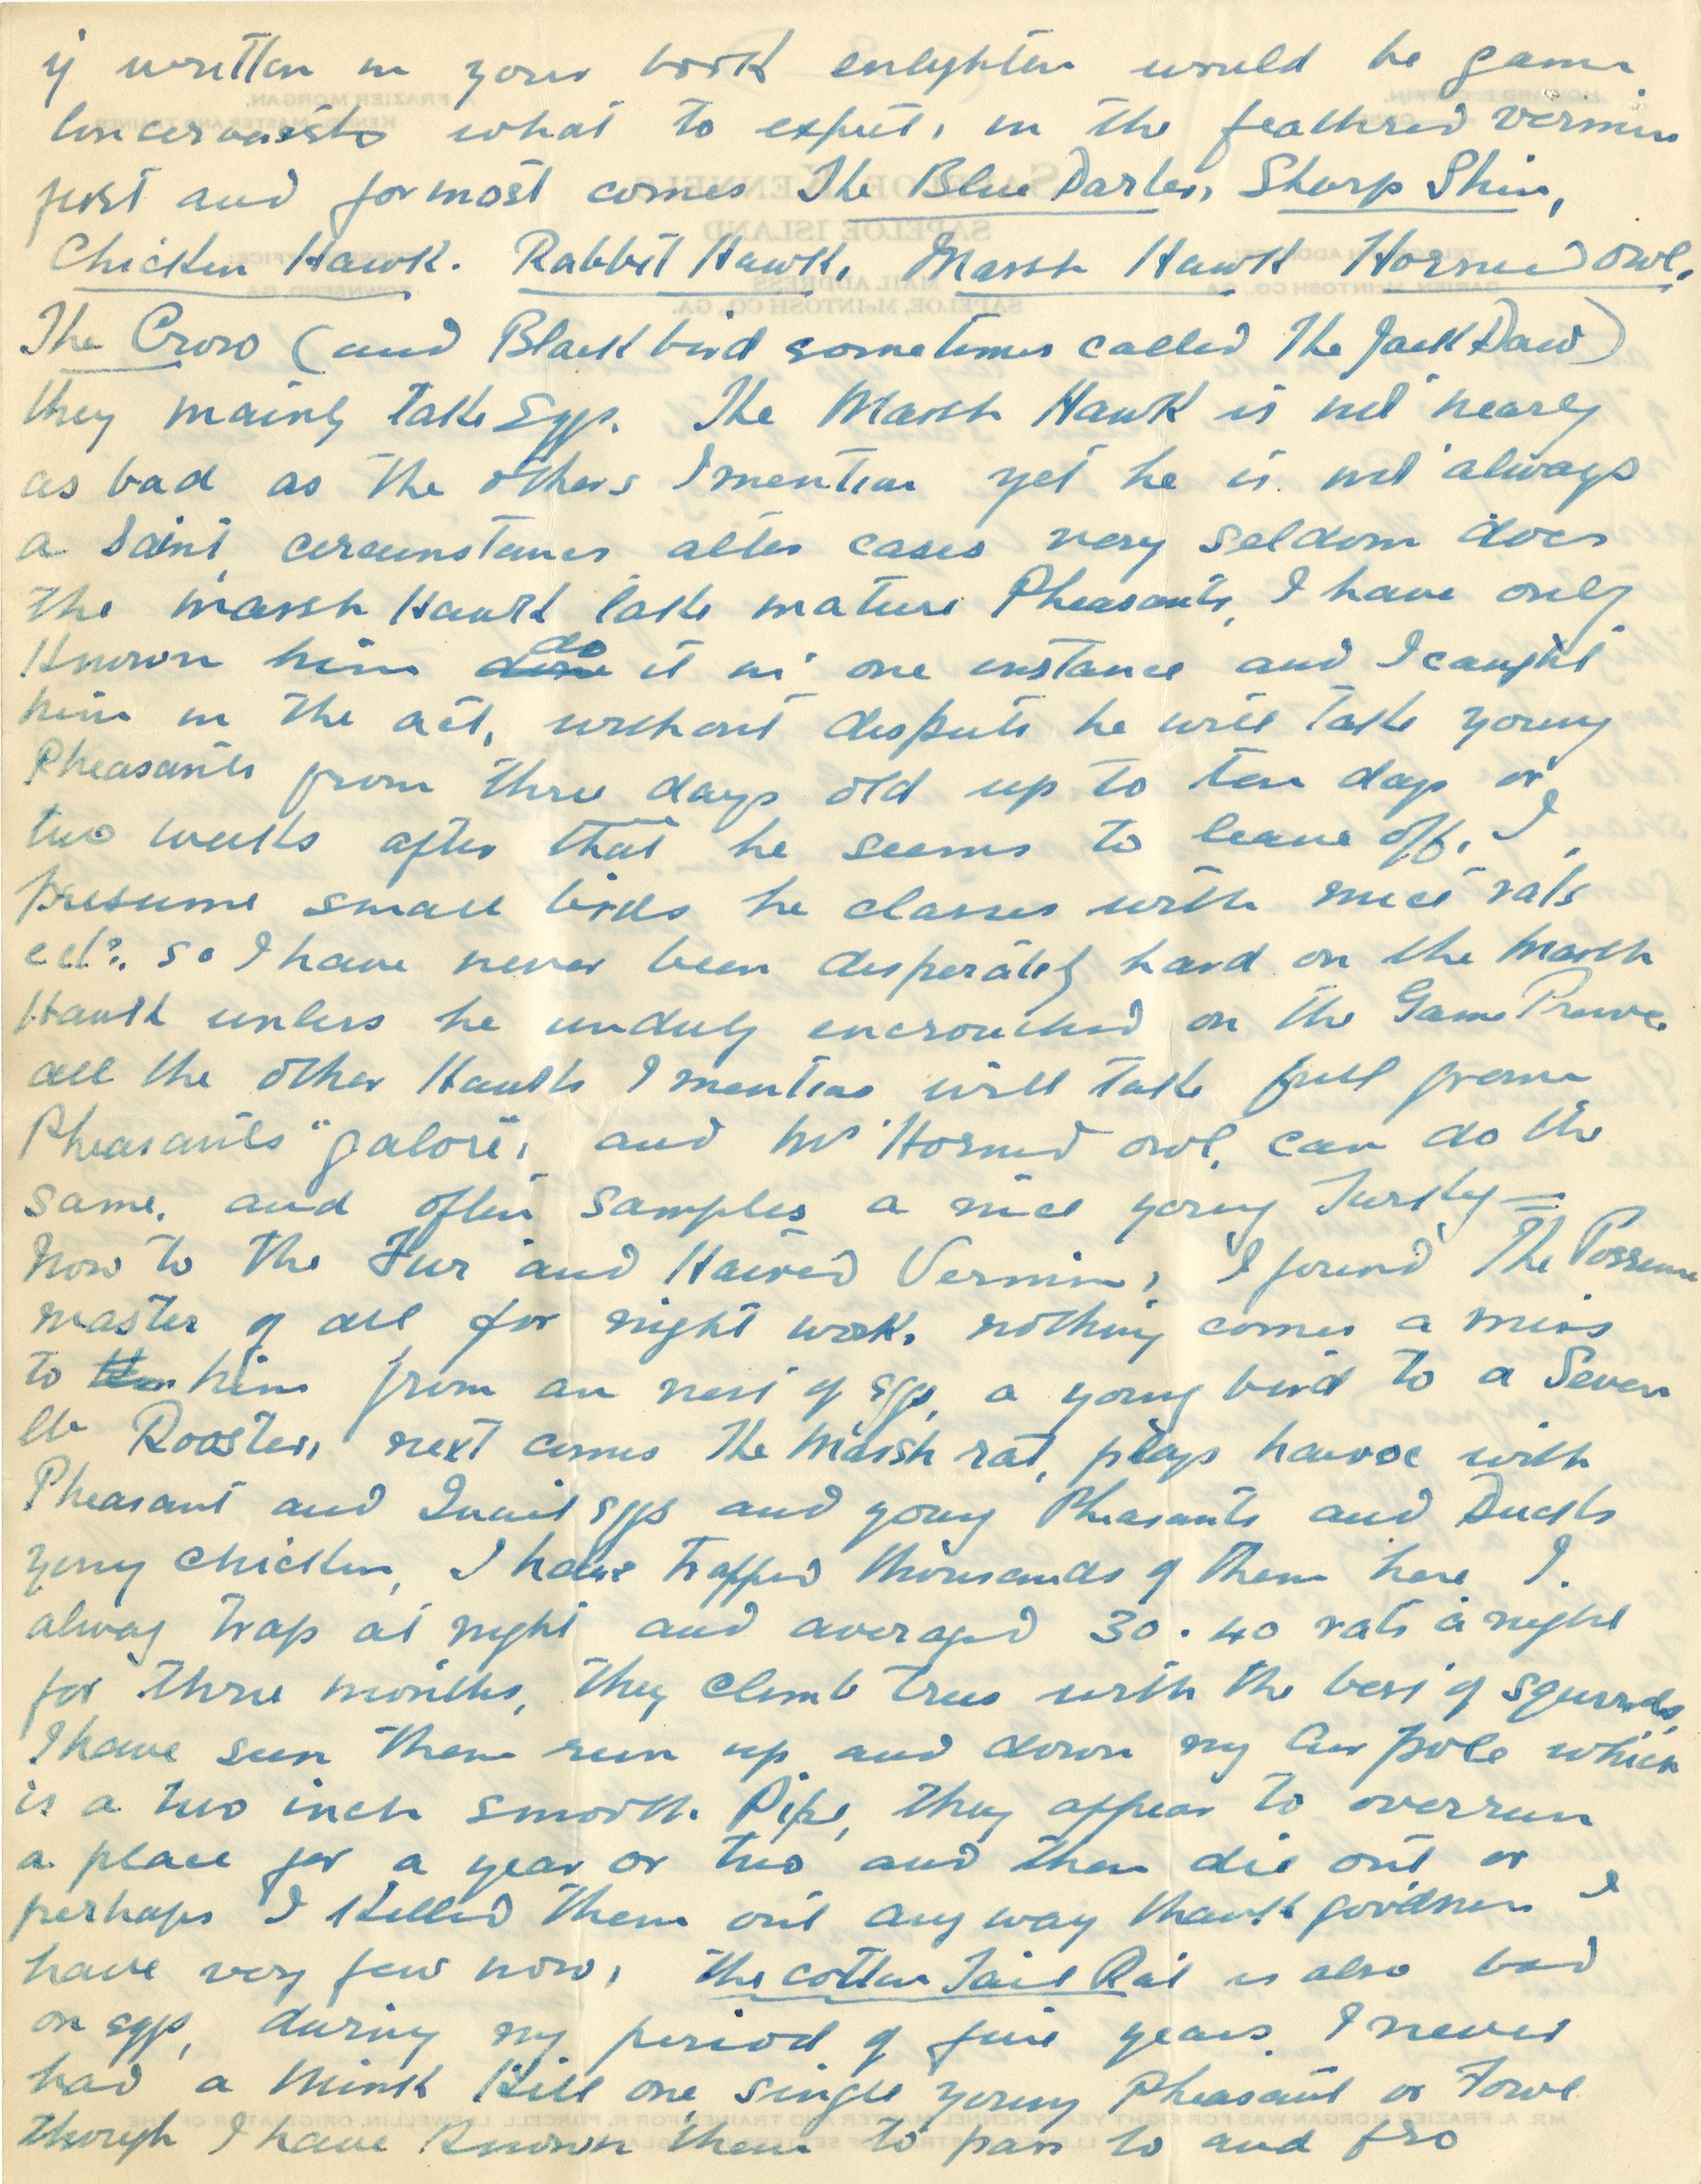 if written in your book enlighten would be game
concervasts what to expect, in the feathred vermin
first and formost comes The Blue Darter, Sharp Shin,
Chicken Hawk. Rabbit Hawk, Marsh Hawk Horned owl,
The Crow (and Blackbird sometimes called The Jack Daw)
they mainly take Eggs. The Marsh Hawk is not nearly
as bad as the others I mention yet he is not always
a Saint, circumstances alter cases very seldom does
the Marsh Hawk take mature Pheasants, I have only
Known him done do it in one instance and I caught
him in the act, without dispute he will take young
Pheasants from three days old up to ten days or
two weeks after that he seems to leave off, I
presume small birds he classes with mice rats
ect. so I have never been desperately hard on the Marsh
Hawk unless he unduly encrouched on the Game Preserve.
all the other Hawks I mention will take full grown
Pheasants "galore", and Mr Horned owl, can do the
same, and often samples a nice young Turkey —
Now to the Fur and Haired Vermin, I found The Possum
master of all for night work, nothing comes a miss
to him from an nest of egs, a young bird to a Seven
lb Rooster, next comes The Marsh rat, plays havoc with
Pheasant and Quail eggs and young Pheasants and Ducks
young chicken, I have trapped thousands of them here I
alway trap at night and averaged 30 . 40 rats a night
for three months, they climb trees with the best of squirrels,
I have seen them run up and down my Air pole which
is a two inch smooth Pipe, they appear to overrun
a place for a year or two and then die out or
perhaps I Killed them out any way thank goodness I
have very few now, The cotton Tail Rat is also bad
on eggs, during my period of five years I never
had a Mink Kill one single young Pheasant or Fowl
though I have Known them to pass to and fro